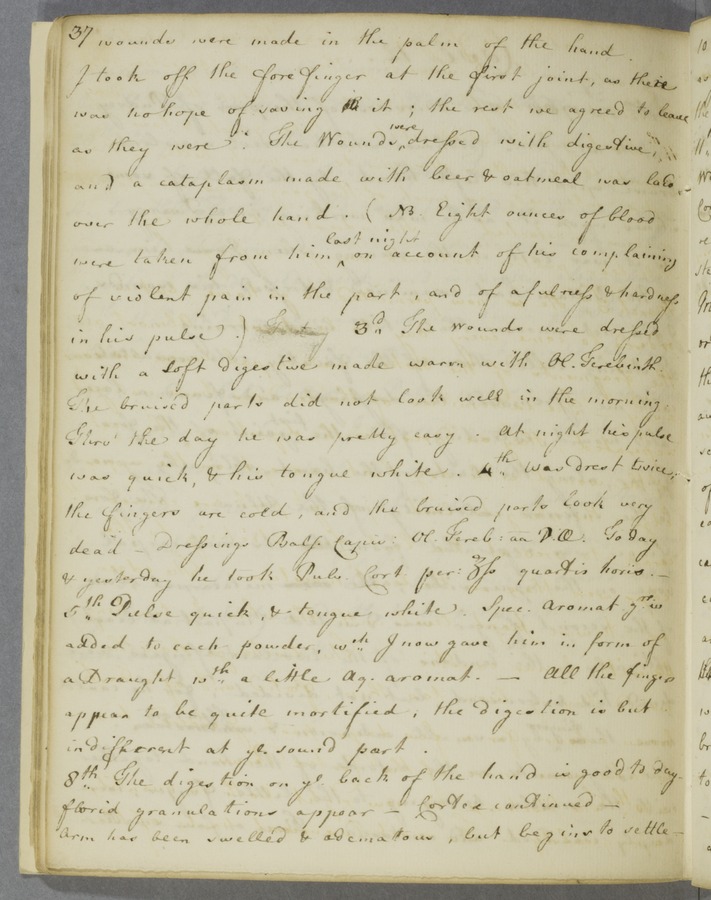 37 wounds were made in the palm of the hand.
I took off the fore finger at the first joint, as there
was no hope of saving it ; the rest we agreed to leave
as they were. The Wounds were dressed with digestive,
and a cataplasm made with beer & oatmeal was laid
over the whole hand. ( NB. Eight ounces of blood
were taken from him last night on account of his complaining
of violent pain in the part, and of a fulness & hardness
in his pulse.) 3d. The Wounds were dressed
with a soft digestive made warm with Ol. Terebinth.
The bruised parts did not look well in the morning.
Thro' the day he was pretty easy. At night his pulse
was quick, & his tongue white. 4th. Was drest twice,
the fingers are cold, and the bruised parts look very
dead - Dressings Bals. Capiv: Ol. Tereb: aa P.Æ. To day
& yesterday he took Pulv. Cort. per: ʒſs quartis horis. -
5th. Pulse quick, & tongue white. Spec. Aromat
added to each powder, wch. I now gave him in form of
a Draught wth. a little Aq. aromat. - All the fingers
appear to be quite mortified, the digestion is but
indifferent at ye. sound part.
8th. The digestion on ye. back of the hand is good to day.
florid granulations appear - Cortex continued -
Arm has been swelled & œdematous, but begins to settle -